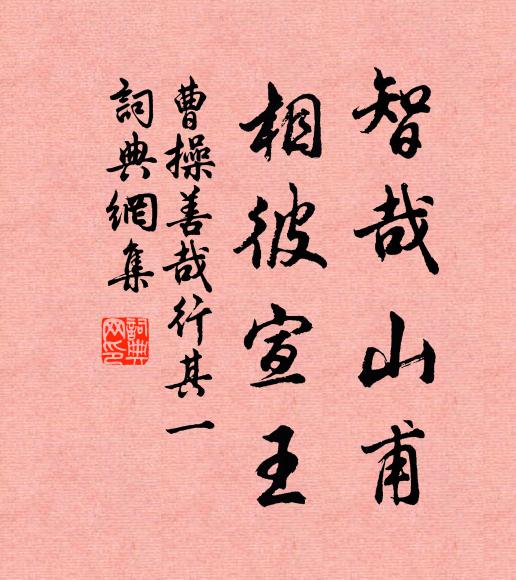 智哉山甫
相彼宣王
曹操善哉行其一
詞典網集
詞典網印